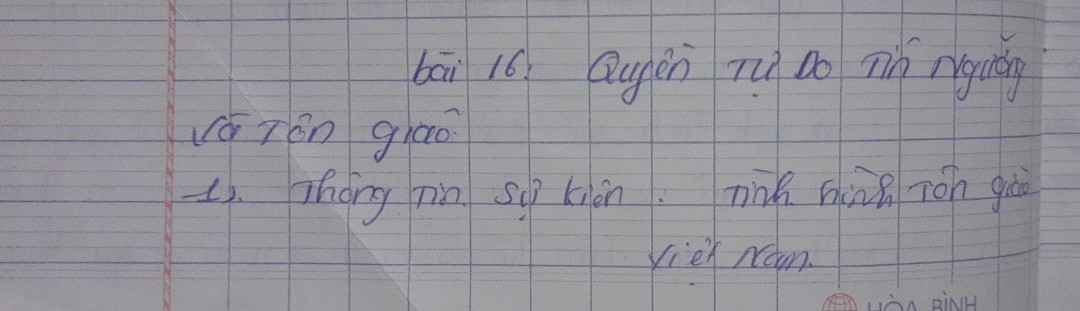 bài 16: Quyền Tự Do Tín Ngưỡng
và Tôn giáo
1). Thông Tin Sự kiện : Tình hình Tôn giáo
Việt Nam.
HÒA BÌNH